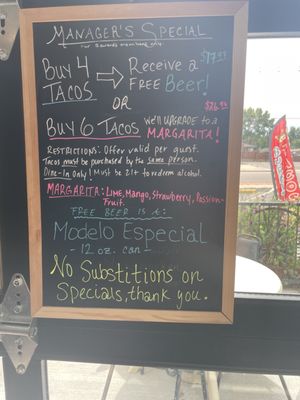 Manager's Special
For Rewards members only.
Buy 4 Tacos → Receive a Free Beer! $17.99
OR
$26.99
Buy 6 Tacos we'll upgrade to a Margarita!
Restrictions: Offer valid per guest.
Tacos must be purchased by the same person.
Dine-In Only! Must be 21+ to redeem alcohol.
Margarita: Lime, Mango, Strawberry, Passion-
Fruit.
Free Beer is a:
Modelo Especial
- 12 oz. can -
No Substitions on
Specials, thank you.